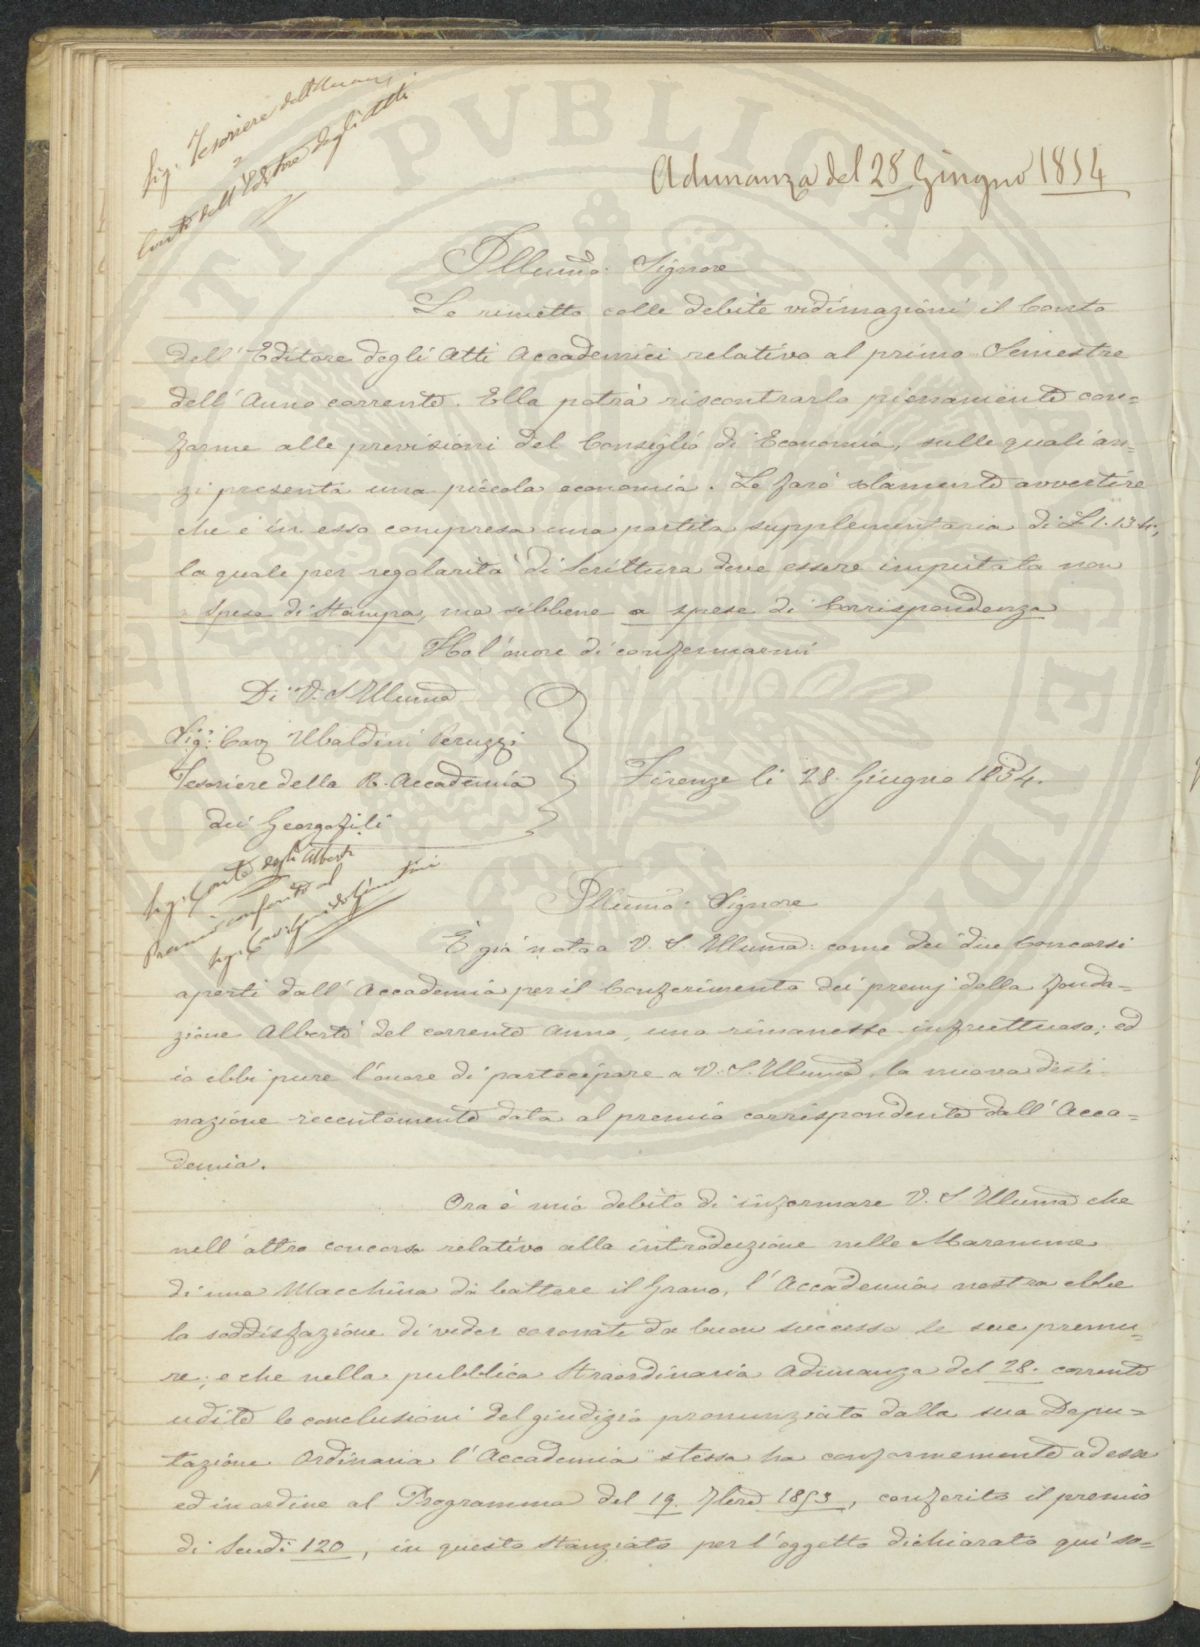 Sig. Tesoriere dell'Accad.
Conto dell'Editore degli Atti
Adunanza del 28 Giugno 1854
Illumo: Signore
Le rimetto colle debite vidimazioni il Conto
dell'Editore degli Atti Accademici relativo al primo Semestre
dell'Anno corrente. Ella potrà riscontrarlo pienamente con=
forme alle previsioni del Consiglio di Economia, sulle quali an=
zi presenta una piccola economia. Le farò solamente avvertire
che è in esso compresa una partita supplementaria di £ 1.13.4;
la quale per regolarità di Scrittura deve essere imputata non
a spese di Stampa, ma sibbene a spese di Corrispondenza
Ho l'onore di confermarmi
Di V. S. Illuma
Sigr: Cav Ubaldini Peruzzi
Tesoriere della R. Accademia
dei Georgofili
Firenze li 28 Giugno 1854.
Sig. Conte degli Alberti
Premio conferito al
Sig. Cav.
Illumo: Signore
È già noto a V. S. Illuma: come dei due Concorsi
aperti dall'Accademia per il Conferimento dei premj della fonda=
zione Alberti del corrente Anno, uno rimanesse infruttuoso; ed
io ebbi pure l'onore di partecipare a V. S. Illuma la nuova desti=
nazione recentemente data al premio corrispondente dall'Acca=
demia.
Ora è mio debito di informare V. S. Illuma che
nell'altro concorso relativo alla introduzione nelle Maremme
di una Macchina da battere il Grano, l'Accademia nostra ebbe
la soddisfazione di veder coronate da buon successo le sue premu=
re; e che nella pubblica Straordinaria Adunanza del 28. corrente
udite le conclusioni del giudizio pronunziato dalla sua Depu=
tazione Ordinaria l'Accademia stessa ha conformemente ad esse
ed in ordine al Programma del 19. 7bre 1853, conferito il premio
di Scudi 120, in questo stanziato per l'oggetto dichiarato qui so=